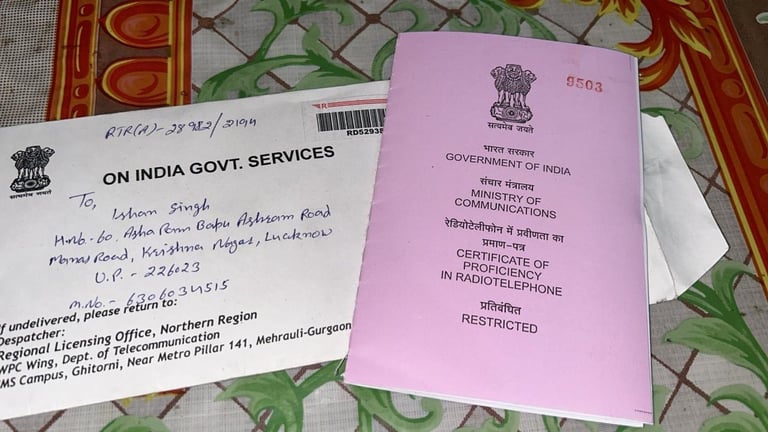 RTR(A)-28982/2194
R
RD5293
सत्यमेव जयते
ON INDIA GOVT. SERVICES
To,
Ishan Singh
H.No.-60, Asha Ram Bapu Ashram Road
Manas Road, Krishna Nagar, Lucknow
U.P. - 226023
M.No. - 6306034515
If undelivered, please return to:
Despatcher:
Regional Licensing Office, Northern Region
WPC Wing, Dept. of Telecommunication
MS Campus, Ghitorni, Near Metro Pillar 141, Mehrauli-Gurgaon
9503
सत्यमेव जयते
भारत सरकार
GOVERNMENT OF INDIA
संचार मंत्रालय
MINISTRY OF
COMMUNICATIONS
रेडियोटेलीफोन में प्रवीणता का
प्रमाण-पत्र
CERTIFICATE OF
PROFICIENCY
IN RADIOTELEPHONE
प्रतिबंधित
RESTRICTED